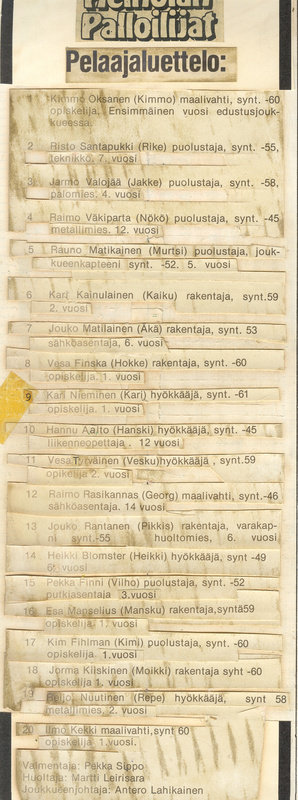 Heinolan
Palloilijat
Pelaajaluettelo:
1 Kimmo Oksanen (Kimmo) maalivahti, synt. -60
opiskelija, Ensimmäinen vuosi edustusjouk-
kueessa.
2 Risto Santapukki (Rike) puolustaja, synt. -55,
teknikko. 7. vuosi
3 Jarmo Valojää (Jakke) puolustaja, synt. -58,
palomies. 4. vuosi
4 Raimo Väkiparta (Nökö) puolustaja, synt. -45
metallimies. 12. vuosi
5 Rauno Matikainen (Murtsi) puolustaja, jouk-
kueenkapteeni synt. -52. 5. vuosi
6 Kari Kainulainen (Kaiku) rakentaja, synt.59
2. vuosi
7 Jouko Matilainen (Äkä) rakentaja, synt. 53
sähköasentaja, 6. vuosi
8 Vesa Finska (Hokke) rakentaja, synt. -60
opiskelija. 1. vuosi
9 Kari Nieminen (Kari) hyökkääjä, synt. -61
opiskelija. 1. vuosi
10 Hannu Aalto (Hanski) hyökkääjä, synt. -45
liikenneopettaja . 12 vuosi
11 Vesa (Vesku)hyökkääjä , synt.59
opikelija 2. vuosi
12 Raimo Rasikannas (Georg) maalivahti, synt.-46
sähköasentaja. 14 vuosi
13 Jouko Rantanen (Pikkis) rakentaja, varakap-
ni synt.-55 huoltomies, 6. vuosi
14 Heikki Blomster (Heikki) hyökkääjä, synt -49
6. vuosi
15 Pekka Finni (Vilho) puolustaja, synt. -52
putkiasentaja 3.vuosi
16 Esa Manselius (Mansku) rakentaja,syntä59
opiskelija. 1. vuosi
17 Kim Fihlman (Kimi) puolustaja, synt. -60
opiskelija. 1.vuosi
18 Jorma Kilskinen (Moikki) rakentaja syht -60
opiskelija 1. vuosi
19 Reijo Nuutinen (Repe) hyökkääjä, synt 58
metallimies, 2. vuosi
20 Ilmo Kekki maalivahti,synt 60
opiskelija 1.vuosi.
Valmentaja: Pekka Sippo
Huoltaja: Martti Leirisara
Joukkueenjohtaja: Antero Lahikainen